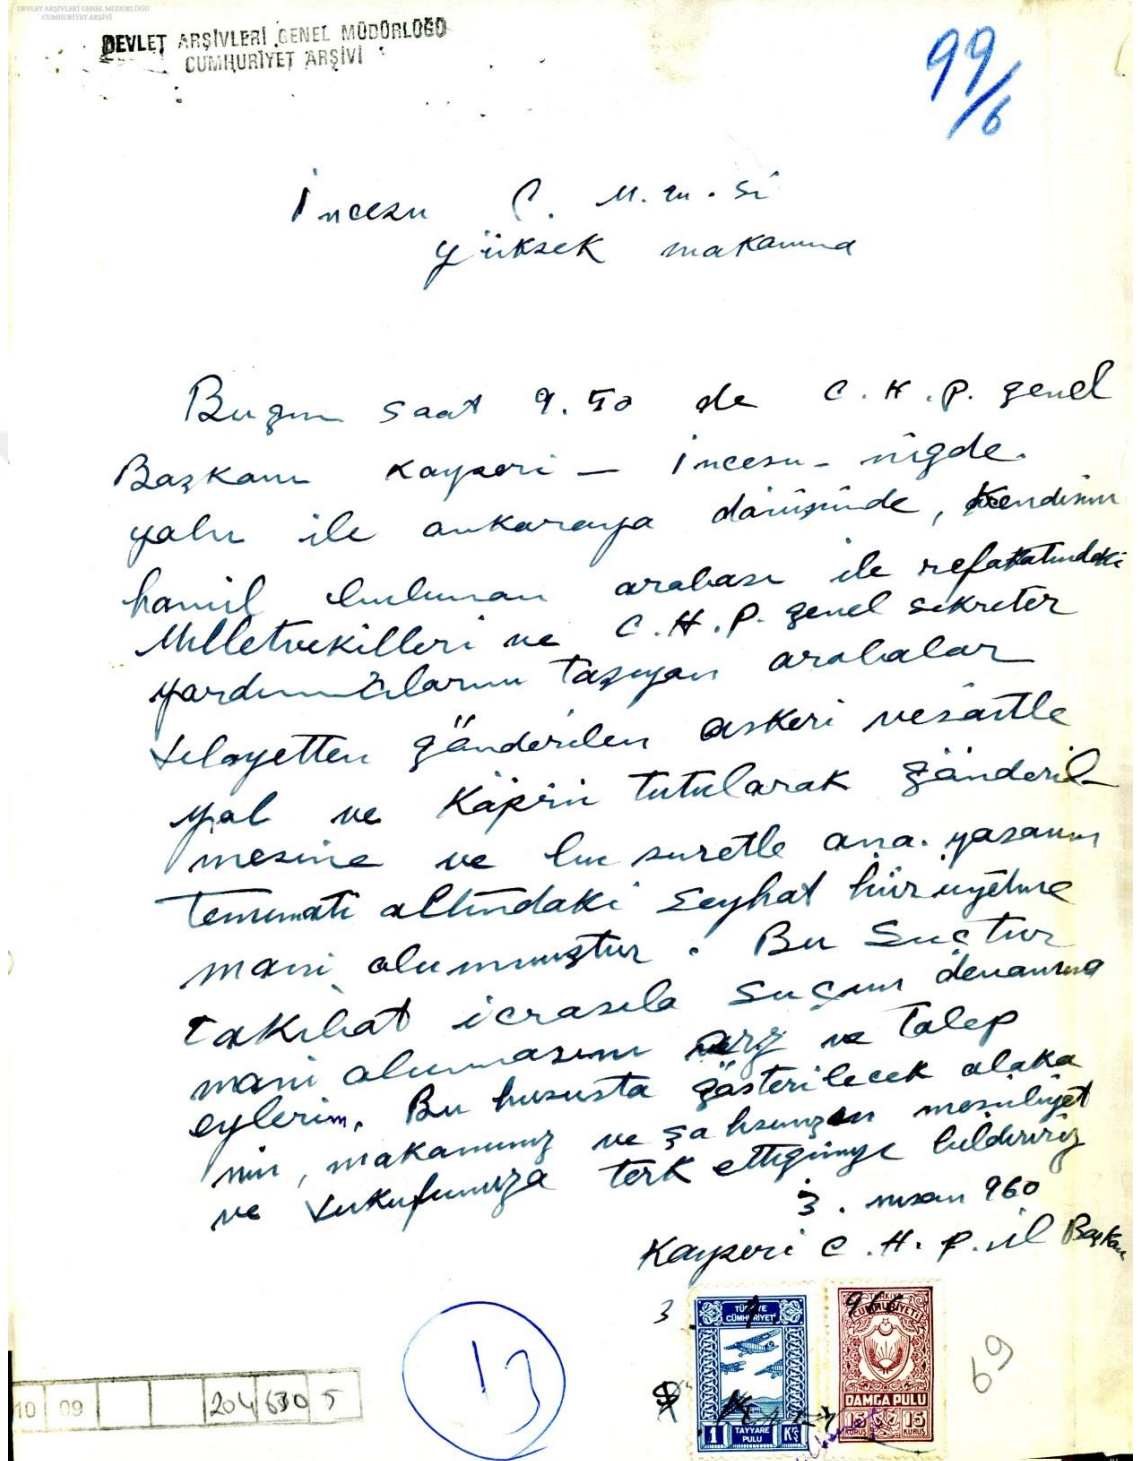 DEVLET ARŞİVLERİ GENEL MÜDÜRLÜĞÜ
CUMHURİYET ARŞİVİ
DEVLET ARŞİVLERİ GENEL MÜDÜRLÜĞÜ
CUMHURİYET ARŞİVİ
99/6
İncesu C. M. u. si
yüksek makamına
Bugün saat 9.50 de C.H.P. genel
Başkanı Kayseri - İncesu - niğde
yolu ile ankaraya dönüşünde, Kendisini
hamil bulunan arabası ile refakatındaki
Milletvekilleri ve C.H.P. genel sekreter
yardımcılarını taşıyan arabalar
vilayetten gönderilen askeri vesaitle
yol ve Köprü tutularak gönderil-
mesine ve bu suretle ana. yasanın
teminatı altındaki Seyhat hürriyetine
mani olunmuştur. Bu Suçtur
takibat icrasıla Suçun devamına
mani olunmasını arz ve talep
eylerim. Bu hususta gösterilecek alaka
nın, makamınız ve şahsınızın mesuliyet
ve vukufunuza terk ettiğimizi bildiririz
3. nisan 960
Kayseri C.H.P. il Başkanı
3 4 960
TÜRKİYE
CÜMHURİYETİ
1 TAYYARE PULU KŞ
TÜRKİYE
CUMHURİYETİ
DAMGA PULU
15 KURUŞ 15 KURUŞ
13
69
10 09 204 630 5